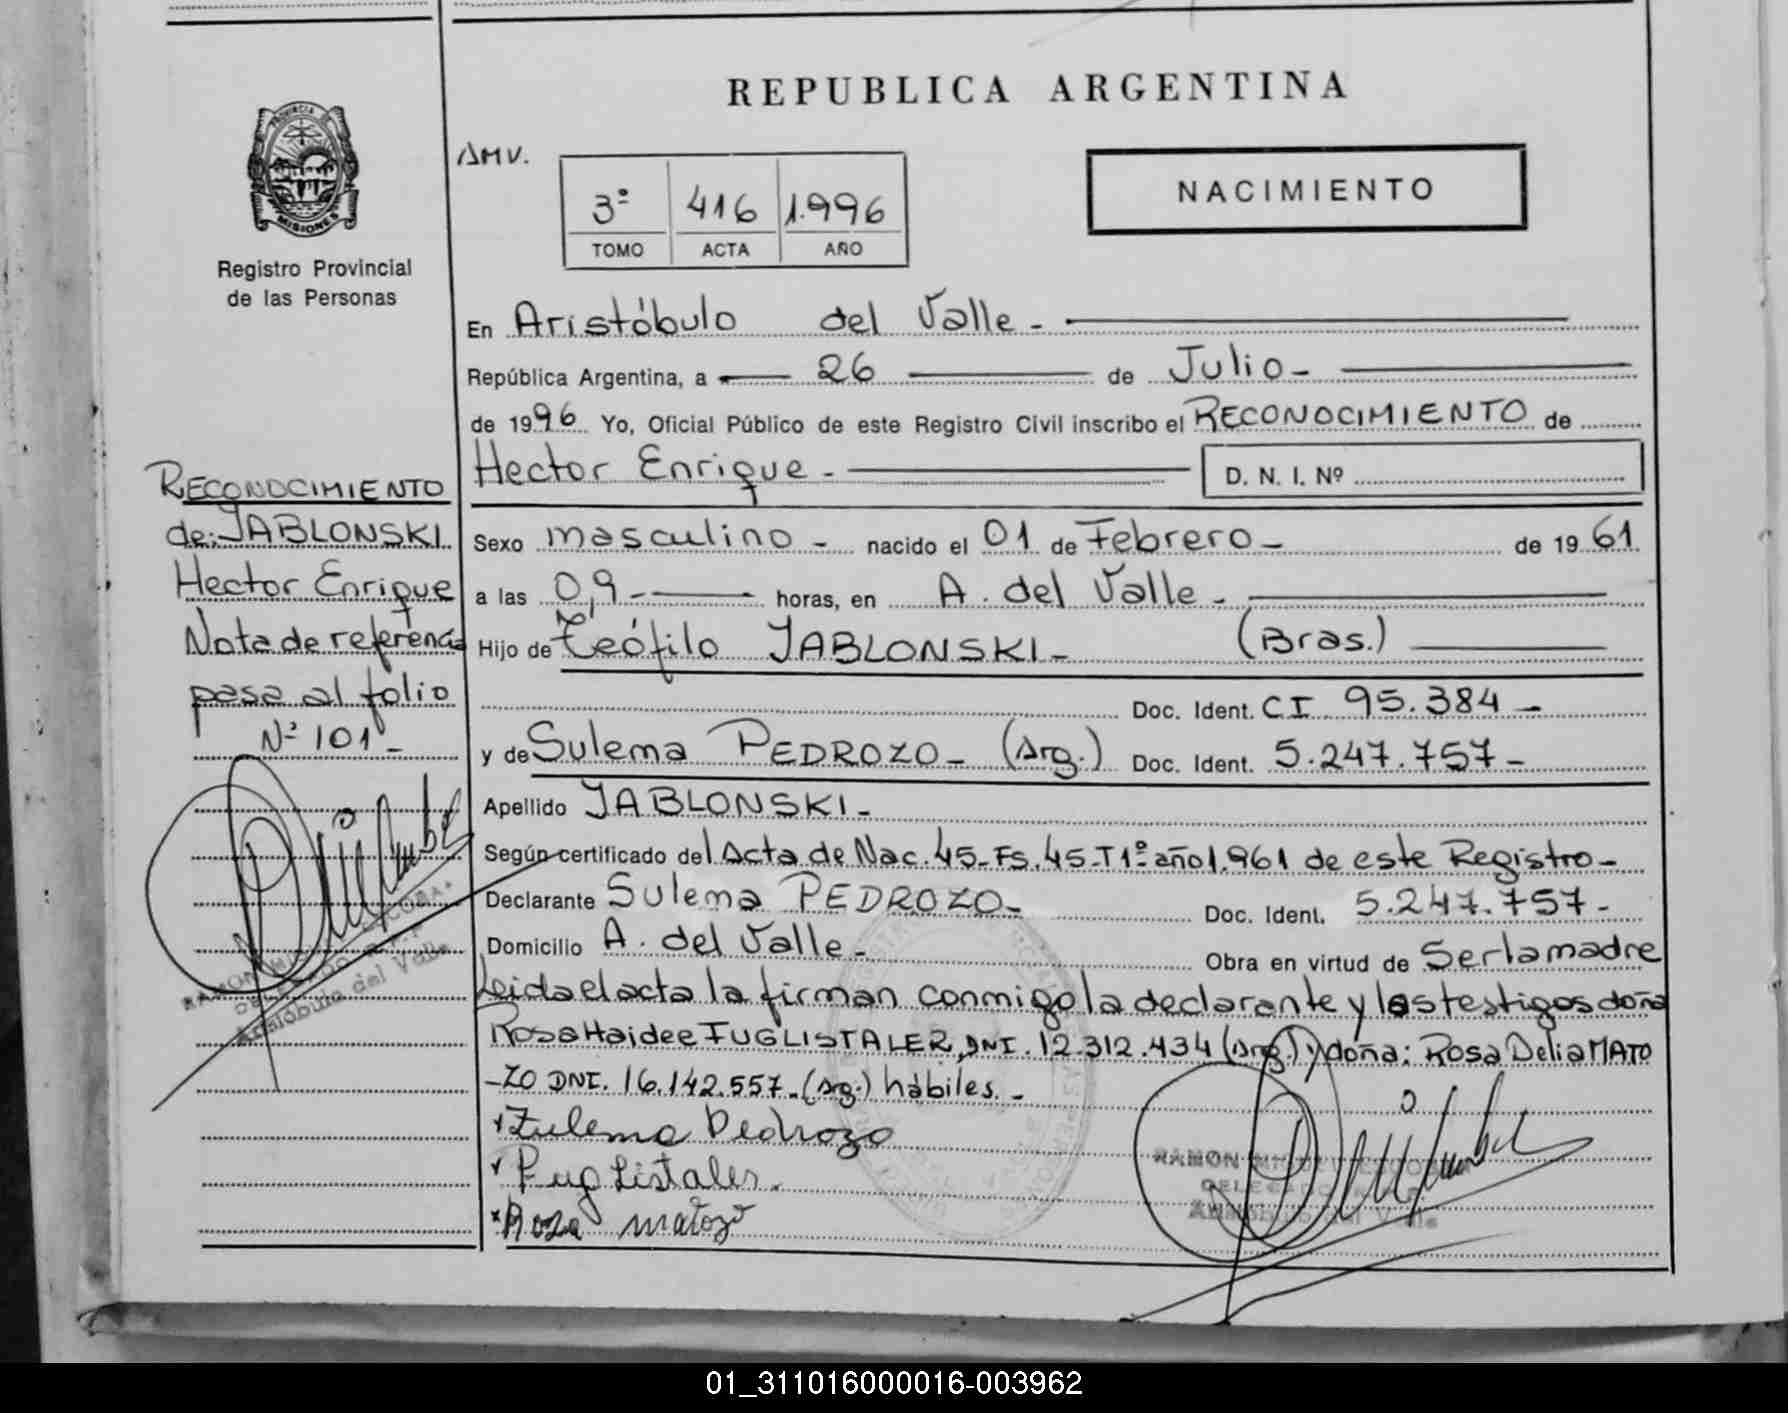 REPUBLICA ARGENTINA
PROVINCIA DE
MISIONES
Registro Provincial
de las Personas
AMV.
3º 416 1.996
TOMO ACTA AÑO
NACIMIENTO
En Aristóbulo del Valle -
República Argentina, a 26 de Julio -
de 1996 Yo, Oficial Público de este Registro Civil inscribo el RECONOCIMIENTO de
Hector Enrique - D. N. I. Nº
RECONOCIMIENTO
de: JABLONSKI
Hector Enrique
Nota de referencia
pasa al folio
Nº 101 -
Sexo masculino - nacido el 01 de Febrero - de 19 61
a las 0,9 - horas, en A. del Valle -
Hijo de Teófilo JABLONSKI - (Bras.)
Doc. Ident. CI 95.384 -
y de Sulema PEDROZO - (Arg.) Doc. Ident. 5.247.757 -
Apellido JABLONSKI -
Según certificado del Acta de Nac. 45 - Fs. 45 - T1º año 1.961 de este Registro -
Declarante Sulema PEDROZO - Doc. Ident. 5.247.757 -
Domicilio A. del Valle - Obra en virtud de Ser la madre
Leida el acta la firman conmigo la declarante y las testigos doña
Rosa Haidee FUGLISTALER, DNI. 12.312.434 (Arg.) y doña: Rosa Delia MATO
-ZO DNI. 16.142.557 - (Arg.) hábiles. -
Zulema Pedrozo
Fuglistaler.
Rosa matozo
RAMON MIGUEL ESCOBAR
DELEGADO R.P.P.
Aristóbulo del Valle
RAMON MIGUEL ESCOBAR
DELEGADO
Aristóbulo del Valle
01_311016000016-003962